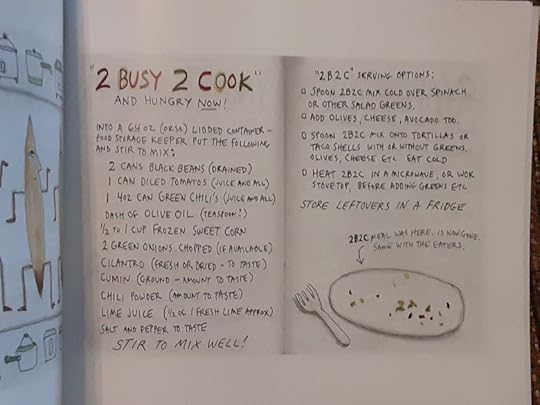 "2 BUSY 2 COOK"
AND HUNGRY NOW!
INTO A 64 OZ (OR SO) LIDDED CONTAINER -
FOOD STORAGE KEEPER PUT THE FOLLOWING
AND STIR TO MIX:
2 CANS BLACK BEANS (DRAINED)
1 CAN DICED TOMATOS (JUICE AND ALL)
1 4OZ CAN GREEN CHILI'S (JUICE AND ALL)
DASH OF OLIVE OIL (TEASPOON?)
1/2 TO 1 CUP FROZEN SWEET CORN
2 GREEN ONIONS CHOPPED (IF AVAILABLE)
CILANTRO (FRESH OR DRIED - TO TASTE)
CUMIN (GROUND - AMOUNT TO TASTE)
CHILI POWDER (AMOUNT TO TASTE)
LIME JUICE (1 1/2 OZ 1 FRESH LIME APPROX)
SALT AND PEPPER TO TASTE
STIR TO MIX WELL!
"2B2C" SERVING OPTIONS:
SPOON 2B2C MIX COLD OVER SPINACH
OR OTHER SALAD GREENS.
ADD OLIVES, CHEESE, AVOCADO TOO.
SPOON 2B2C MIX ONTO TORTILLAS OR
TACO SHELLS WITH OR WITHOUT GREENS,
OLIVES, CHEESE ETC. EAT COLD
HEAT 2B2C IN A MICROWAVE, OR WOK
STOVETOP, BEFORE ADDING GREENS ETC
STORE LEFTOVERS IN A FRIDGE
2B2C MEAL WAS HERE. IS NOW GONE.
SAME WITH THE EATERS.